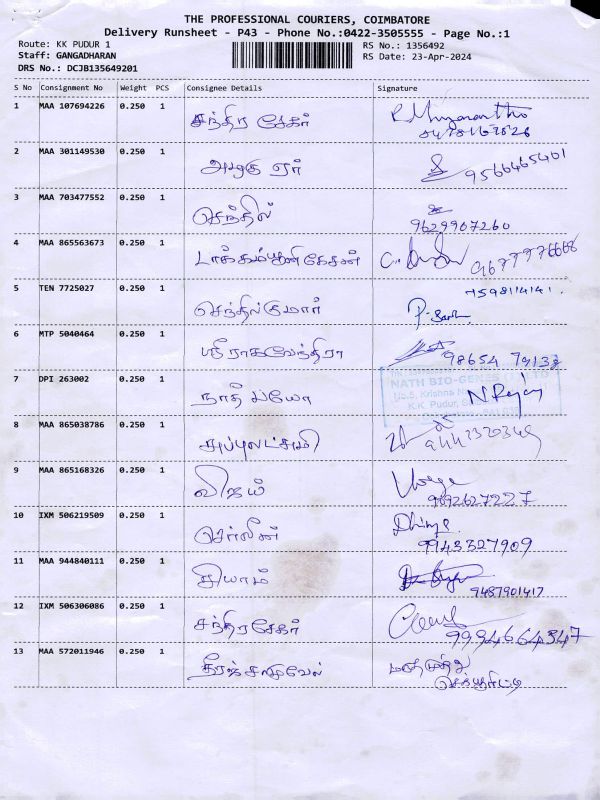 THE PROFESSIONAL COURIERS, COIMBATORE
Delivery Runsheet - P43 - Phone No.:0422-3505555 - Page No.:1
Route: KK PUDUR 1
RS No.: 1356492
Staff: GANGADHARAN
RS Date: 23-Apr-2024
DRS No.: DCJB135649201
S No Consignment No Weight PCS Consignee Details Signature
1 MAA 107694226 0.250 1 சந்திர சேகர்
2 MAA 301149530 0.250 1 அழகு ஏர் 9566465401
3 MAA 703477552 0.250 1 செந்தில் 9629907260
4 MAA 865563673 0.250 1
5 TEN 7725027 0.250 1 செந்தில்குமார் 7598114141
6 MTP 5040464 0.250 1 ஸ்ரீ ராகவேந்திரா 98654 79132
7 DPI 263002 0.250 1 நாத் பயோ N Rajan
NATH BIO-GENES (I) LTD
K.K. Pudur,
8 MAA 865038786 0.250 1 சுப்புலட்சுமி
9 MAA 865168326 0.250 1 விஜய் 9092627227
10 IXM 506219509 0.250 1 செர்லின் 9943327909
11 MAA 944840111 0.250 1 தியாம் 9487901417
12 IXM 506306086 0.250 1 சந்திரசேகர் 9994664347
13 MAA 572011946 0.250 1